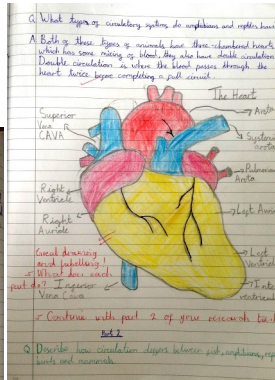 Q What types of circulatory systems do amphibians and reptiles have
A Both of these types of animals have three chambered hearts
which has some mixing of blood, they also have double circulation
Double circulation is where the blood passes through the
heart twice before completing a full circuit.
The Heart
Superior
Vena
CAVA
Aorta
Systemic
Aorta
Pulmonary
Aorta
Right
Ventricle
Left Auricle
Right
Auricle
Great drawing
and labelling!
→ What does each
part do?
Left
Ventricle
Inferior
Vena Cava
→ Continue with part 2 of your research
Part 2
Q Describe how circulation differs between fish, amphibians,
and mammals